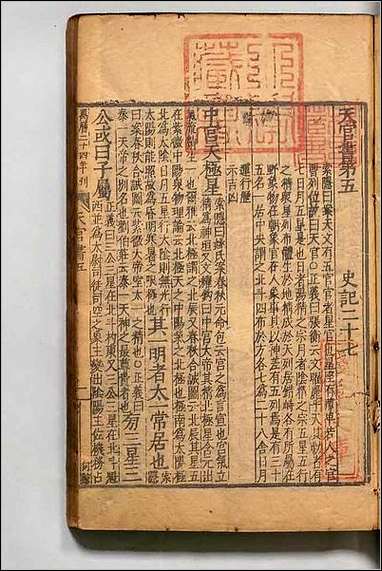 天官書第五
史記二十七
索隱曰案天文有五官官者星官也星座有尊卑若人之官
曹列位故曰天官○正義曰張衡云文曜麗乎天其動者有
七日月五星是也日者陽精之宗月者陰精之宗五星五行
之精衆星列布體生於地精成於天列居錯峙各有所屬在
野象物在朝象官在人象事其以神著有五列焉是有三十
五名一居中央謂之北斗四布於方各七爲二十八舍日月
運行歷
示吉凶
中宮天極星
索隱曰姚氏案春秋元命包云宮之爲言宣也宮
精爲神垣又文耀鉤曰中宮大帝其精北極星含元出
氣流精生一也爾雅云北極謂之北辰又春秋合誠圖云北辰其星五
在紫微中楊泉物理論云北極天之中陽氣之北極也極南爲太陽極
北爲太陰日月五星行太陰則無光行
太陽則能照故爲昏明寒暑之限極也
其一明者太一常居也
曰案春秋合誠圖云紫微大帝室太一之精也○正義曰
泰一天帝之別名也劉伯莊云泰一天神之最尊貴者也
旁三星三
公或曰子屬
正義曰三公三星在北斗杓東又三公三星在北斗魁
西並爲太尉司徒司空之象主變出陰陽主佐機務占
萬曆二十四年刊
天官書五
一